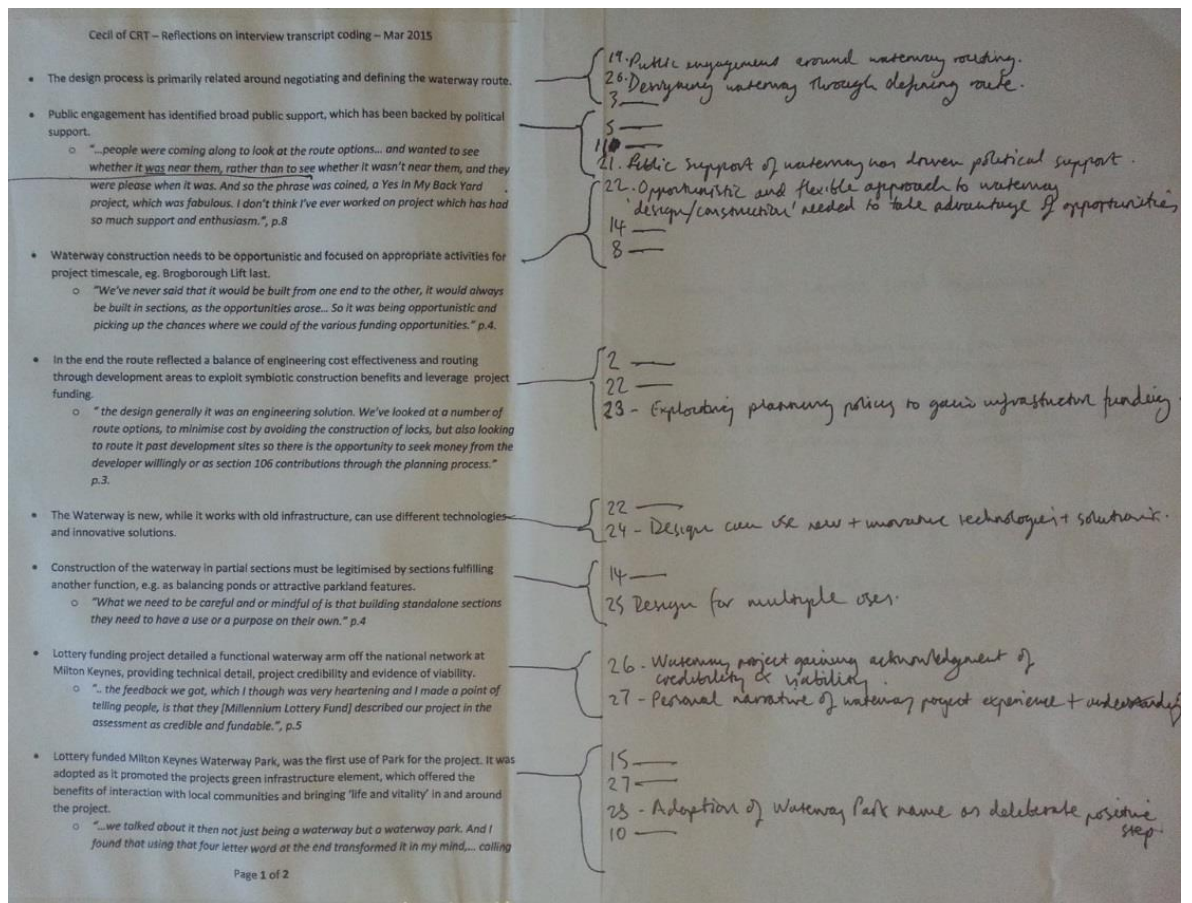 Cecil of CRT – Reflections on interview transcript coding – Mar 2015
• The design process is primarily related around negotiating and defining the waterway route.
• Public engagement has identified broad public support, which has been backed by political
support.
o "...people were coming along to look at the route options... and wanted to see
whether it was near them, rather than to see whether it wasn't near them, and they
were please when it was. And so the phrase was coined, a Yes In My Back Yard
project, which was fabulous. I don't think I've ever worked on project which has had
so much support and enthusiasm.", p.8
• Waterway construction needs to be opportunistic and focused on appropriate activities for
project timescale, eg. Brogborough Lift last.
o "We've never said that it would be built from one end to the other, it would always
be built in sections, as the opportunities arose... So it was being opportunistic and
picking up the chances where we could of the various funding opportunities." p.4.
• In the end the route reflected a balance of engineering cost effectiveness and routing
through development areas to exploit symbiotic construction benefits and leverage project
funding.
o " the design generally it was an engineering solution. We've looked at a number of
route options, to minimise cost by avoiding the construction of locks, but also looking
to route it past development sites so there is the opportunity to seek money from the
developer willingly or as section 106 contributions through the planning process."
p.3.
• The Waterway is new, while it works with old infrastructure, can use different technologies
and innovative solutions.
• Construction of the waterway in partial sections must be legitimised by sections fulfilling
another function, e.g. as balancing ponds or attractive parkland features.
o "What we need to be careful and or mindful of is that building standalone sections
they need to have a use or a purpose on their own." p.4
• Lottery funding project detailed a functional waterway arm off the national network at
Milton Keynes, providing technical detail, project credibility and evidence of viability.
o ".. the feedback we got, which I though was very heartening and I made a point of
telling people, is that they [Millennium Lottery Fund] described our project in the
assessment as credible and fundable.", p.5
• Lottery funded Milton Keynes Waterway Park, was the first use of Park for the project. It was
adopted as it promoted the projects green infrastructure element, which offered the
benefits of interaction with local communities and bringing 'life and vitality' in and around
the project.
o "...we talked about it then not just being a waterway but a waterway park. And I
found that using that four letter word at the end transformed it in my mind,... calling
Page 1 of 2
19. Public engagement around waterway routing.
20. Designing waterway through defining route.
3 —
5 —
21. Public support of waterway has driven political support.
22. Opportunistic and flexible approach to waterway
'design/construction' needed to take advantage of opportunities
14 —
8 —
2 —
22 —
23 - Exploiting planning policy to gain infrastructure funding.
22 —
24 - Design can use new + innovative technologies + solutions.
14 —
25 Design for multiple uses.
26 - Waterway project gaining acknowledgment of
credibility & viability.
27 - Personal narrative of waterway project experience + understanding
15 —
27 —
28 - Adoption of Waterway Park name as deliberate positive
step.
10 —